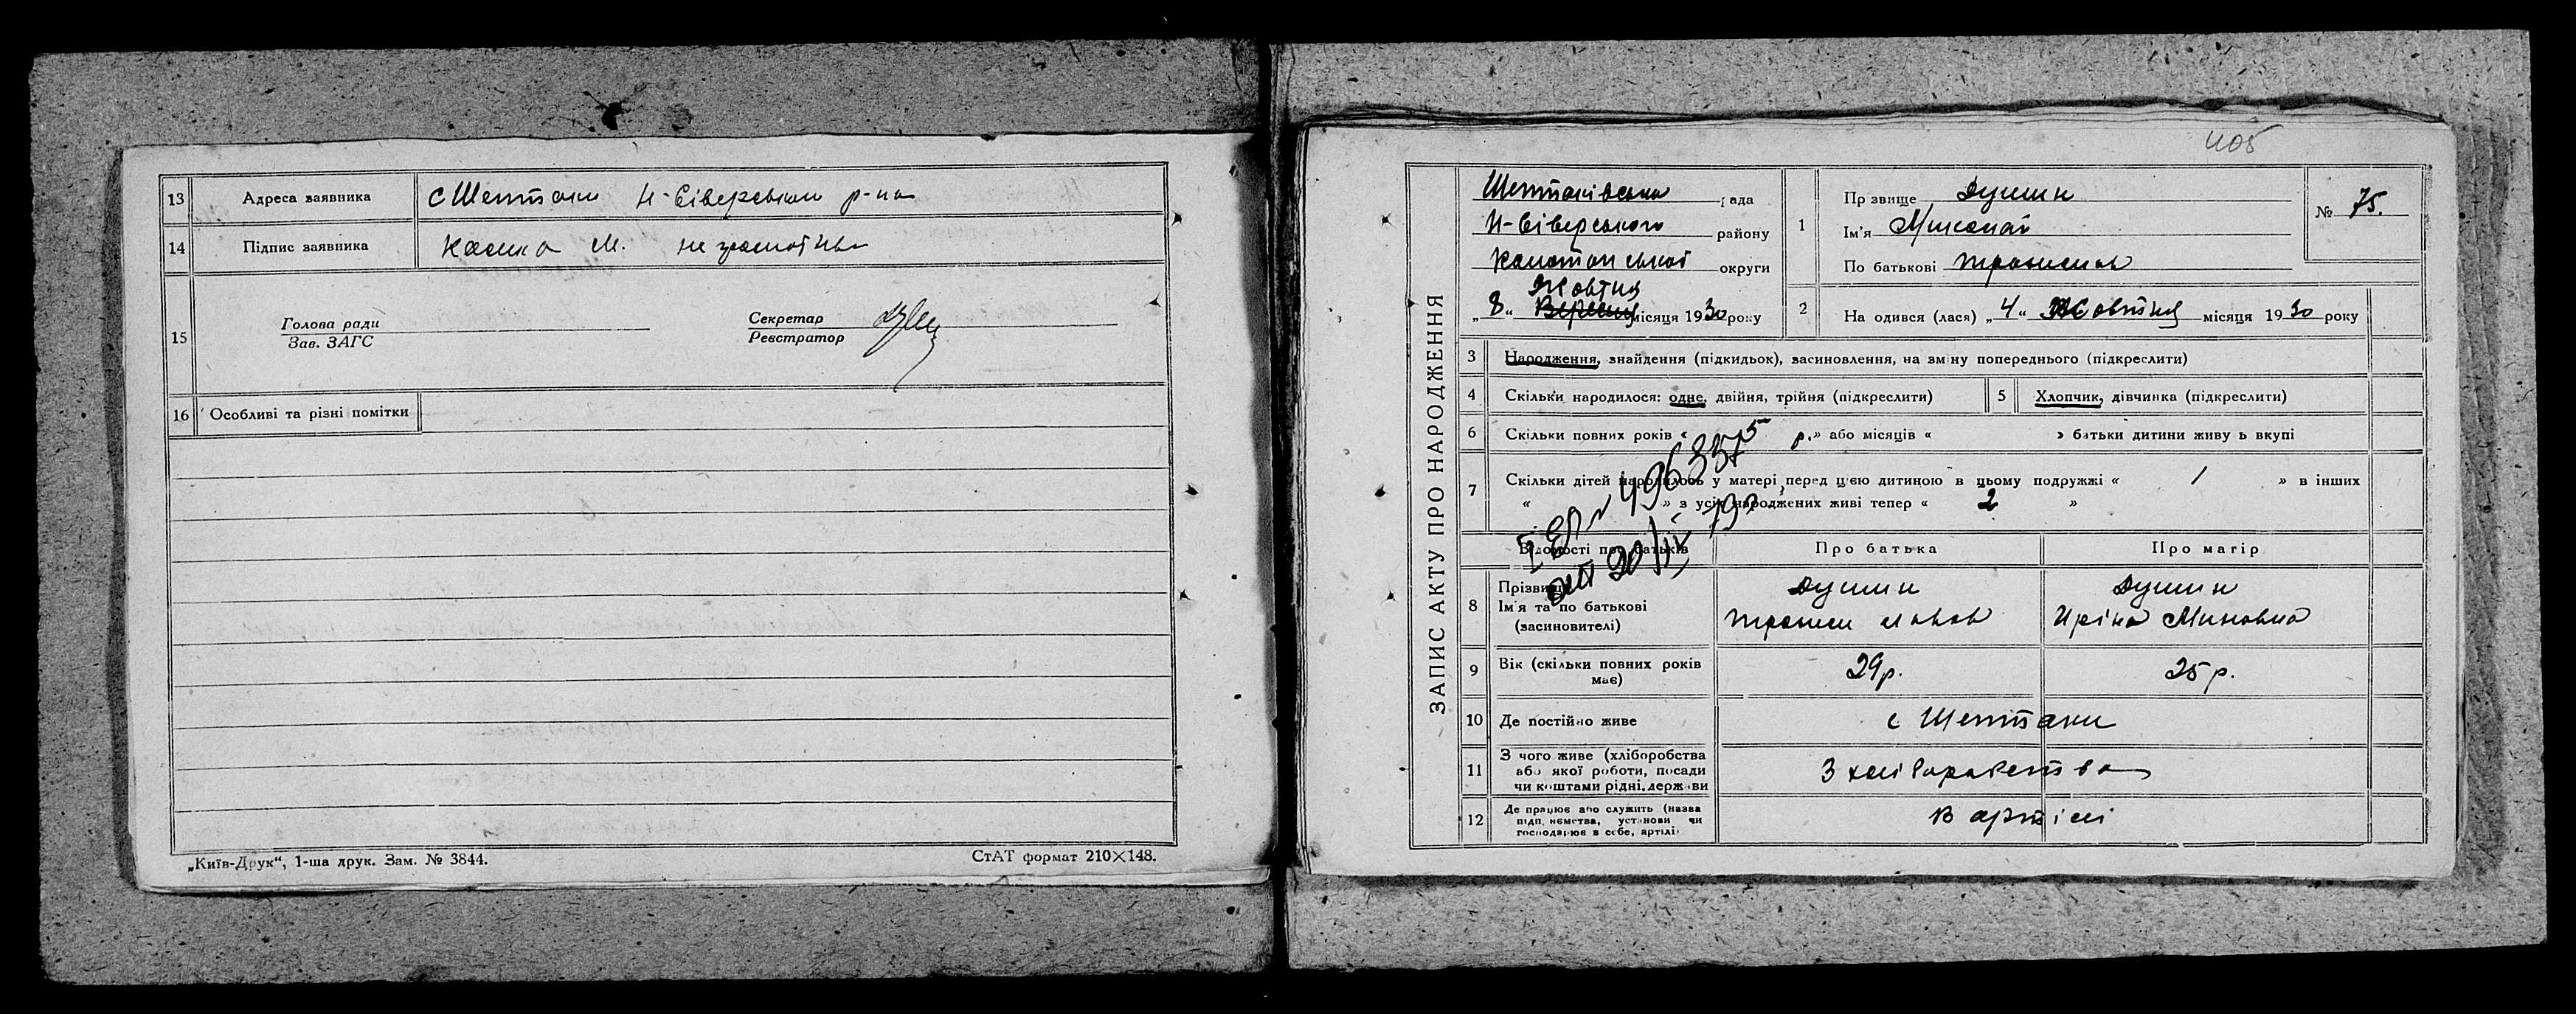 13 Адреса заявника с Шептаки Н-Сіверського р-на
14 Підпис заявника М. неграмотна
15 Голова ради
Зав. ЗАГС
Секретар
Реєстратор
16 Особливі та різні помітки
„Київ-Друк“, 1-ша друк. Зам. № 3844.
СтАТ формат 210×148.
405
ЗАПИС АКТУ ПРО НАРОДЖЕННЯ
Шептаківська рада
Н-Сіверського району
Конотопської округи
Жовтня
„8„ Вересня місяця 1930 року
1 Прзвище Душин
Ім'я Миколай
По батькові
№ 75.
2 На одився (лася) „4„ Жовтня місяця 1930 року
3 Народження, знайдення (підкидьок), засиновлення, на зміну попереднього (підкреслити)
4 Скільки народилося: одне, двійня, трійня (підкреслити)
5 Хлопчик, дівчинка (підкреслити)
6 Скільки повних років « р.» або місяців « » батьки дитини живу ь вкупі
7 Скільки дітей народилось у матері перед цією дитиною в цьому подружжі « 1 » в інших
« » з усіх народжених живі тепер « 2 »
Відомості про батьків Про батька Про матір
8 Прізвище
Ім'я та по батькові
(засиновителі)
Душин
Душин
Ирина Миновна
9 Вік (скільки повних років
має)
29р. 25р.
10 Де постійно живе с Шептаки
11 З чого живе (хліборобства
або якої роботи, посади
чи коштами рідні, держави
З хліборобства
12 Де працює або служить (назва
підприємства, установи чи
господарює в себе, артілі)
В артілі